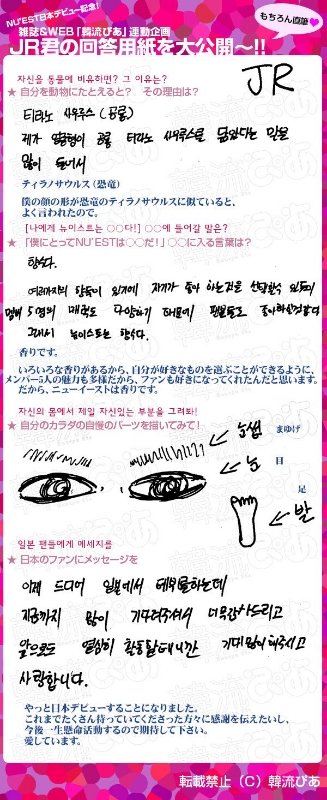 NU'EST日本デビュー記念!
雑誌&WEB「韓流ぴあ」連動企画
もちろん直筆♥
JR君の回答用紙を大公開~!!
JR
자신을 동물에 비유하면? 그 이유는?
★自分を動物にたとえると? その理由は?
티라노 사우루스 (공룡)
제가 얼굴형이 공룡 티라노 사우루스를 닮았다는 말을
많이 들어서
ティラノサウルス(恐竜)
僕の顔の形が恐竜のティラノサウルスに似ていると、
よく言われたので。
[나에게 뉴이스트는 ○○다!] ○○에 들어갈 말은?
★「僕にとってNU'ESTは○○だ!」○○に入る言葉は?
향수다.
여러가지의 향들이 있기에 자기가 좋아 하는것을 선택할수 있듯이
멤버 5명의 매력도 다양하기 때문에 팬분들도 좋아하신것같다
그래서 뉴이스트는 향수다.
香りです。
いろいろな香りがあるから、自分が好きなものを選ぶことができるように、
メンバー5人の魅力も多様だから、ファンも好きになってくれたんだと思います。
だから、ニューイーストは香りです。
자신의 몸에서 제일 자신있는 부분을 그려봐!
★自分のカラダの自慢のパーツを描いてみて!
눈썹 まゆげ
눈 目
足
발
일본 팬들에게 메세지를
★日本のファンにメッセージを
이제 드디어 일본에서 데뷔를하는데
지금까지 많이 기다려주셔서 너무감사드리고
앞으로도 열심히 활동할테니깐 기대많이해주시고
사랑합니다.
やっと日本デビューすることになりました。
これまでたくさん待っていてくださった方々に感謝を伝えたいし、
今後一生懸命活動するので期待して下さい。
愛しています。
転載禁止(C)韓流ぴあ